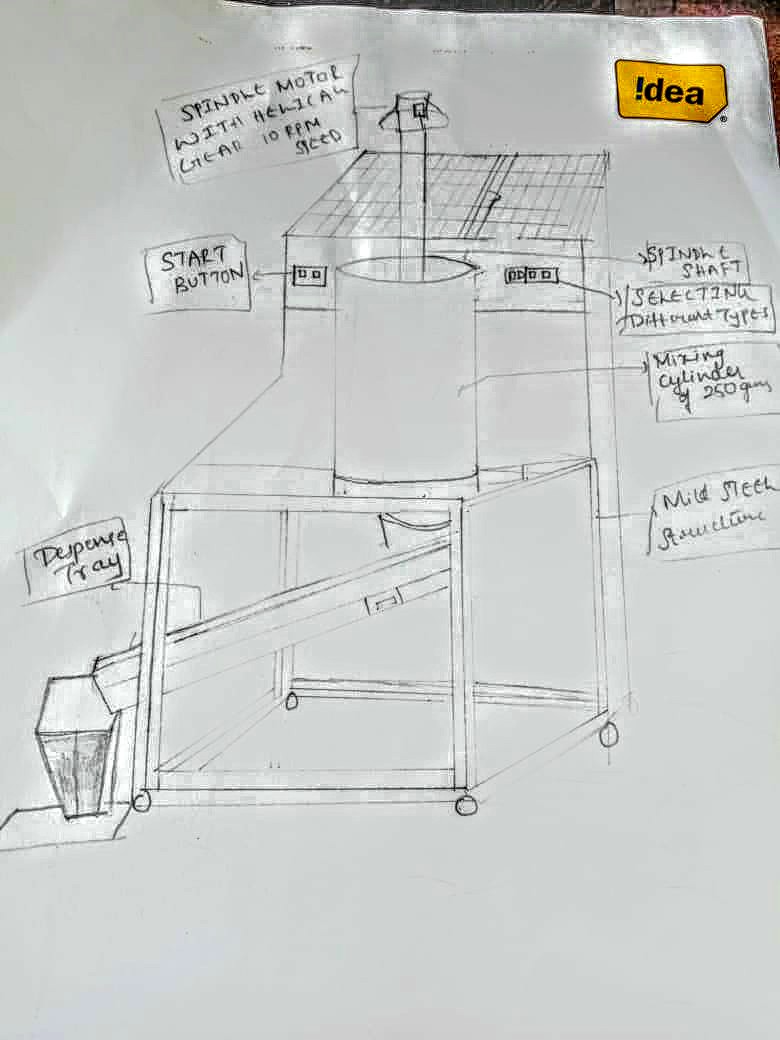 !dea
SPINDLE MOTOR
WITH HELICAL
GEAR 10 RPM
SPEED
START
BUTTON
SPINDLE
SHAFT
SELECTING
Different Types
Mixing
cylinder
of 250 gms
Mild Steel
Structure
Despense
Tray